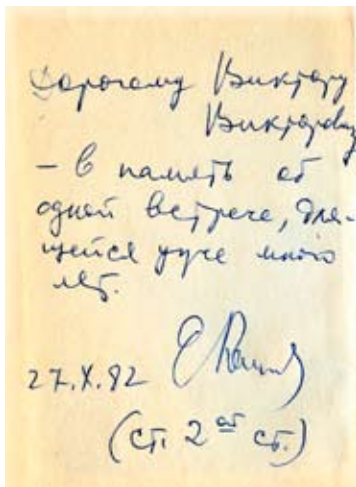 Дорогому Виктору
Викторовичу
– в память об
одной встрече, для-
щейся уже много
лет.
27.X.82
(ст. 2 ст.)